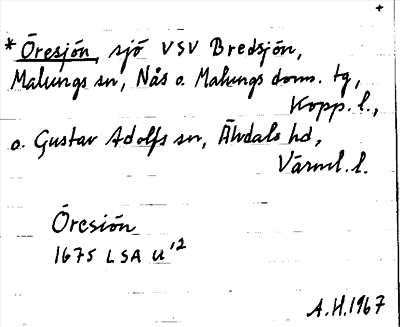 +
* Öresjön, sjö VSV Bredsjön,
Malungs sn, Nås o. Malungs doms. tg,
Kopp. l.,
o. Gustav Adolfs sn, Älvdals hd,
Värml. l.
Öresiön
1675 LSA U'2
A.H. 1967